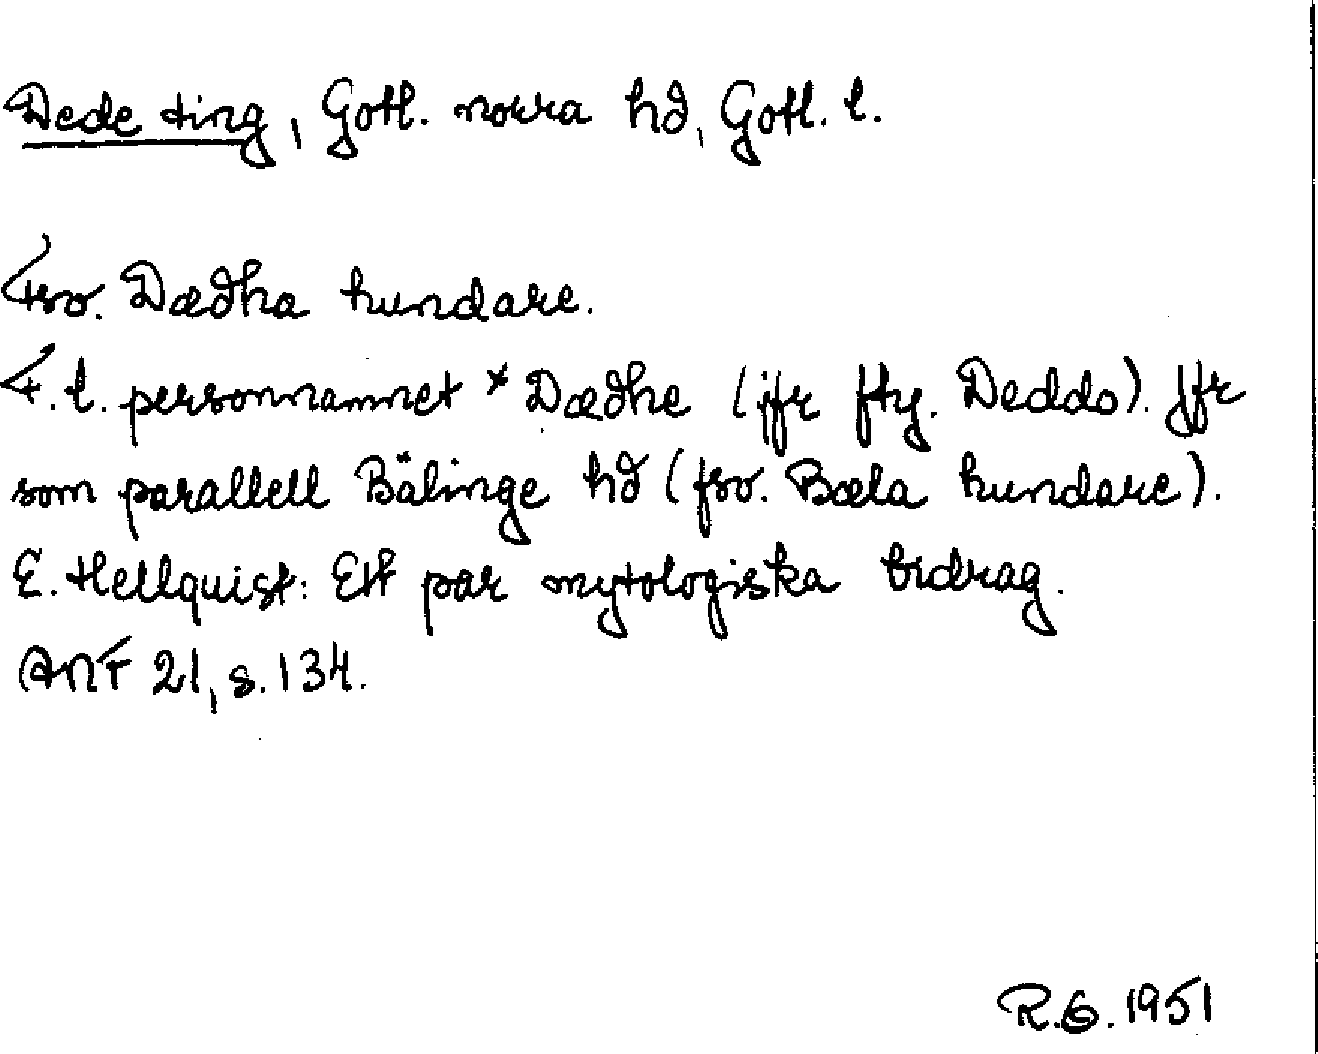 Dede ting, Gotl. norra hd, Gotl. l.
Fsv. Dædha hundare.
F. t. personnamnet *Dædhe (jfr fty. Deddo). Jfr
som parallell Bälinge hd (fsv. Bæla hundare).
E. Hellquist: Ett par mytologiska bidrag.
ANF 21, s. 134.
R.G. 1951